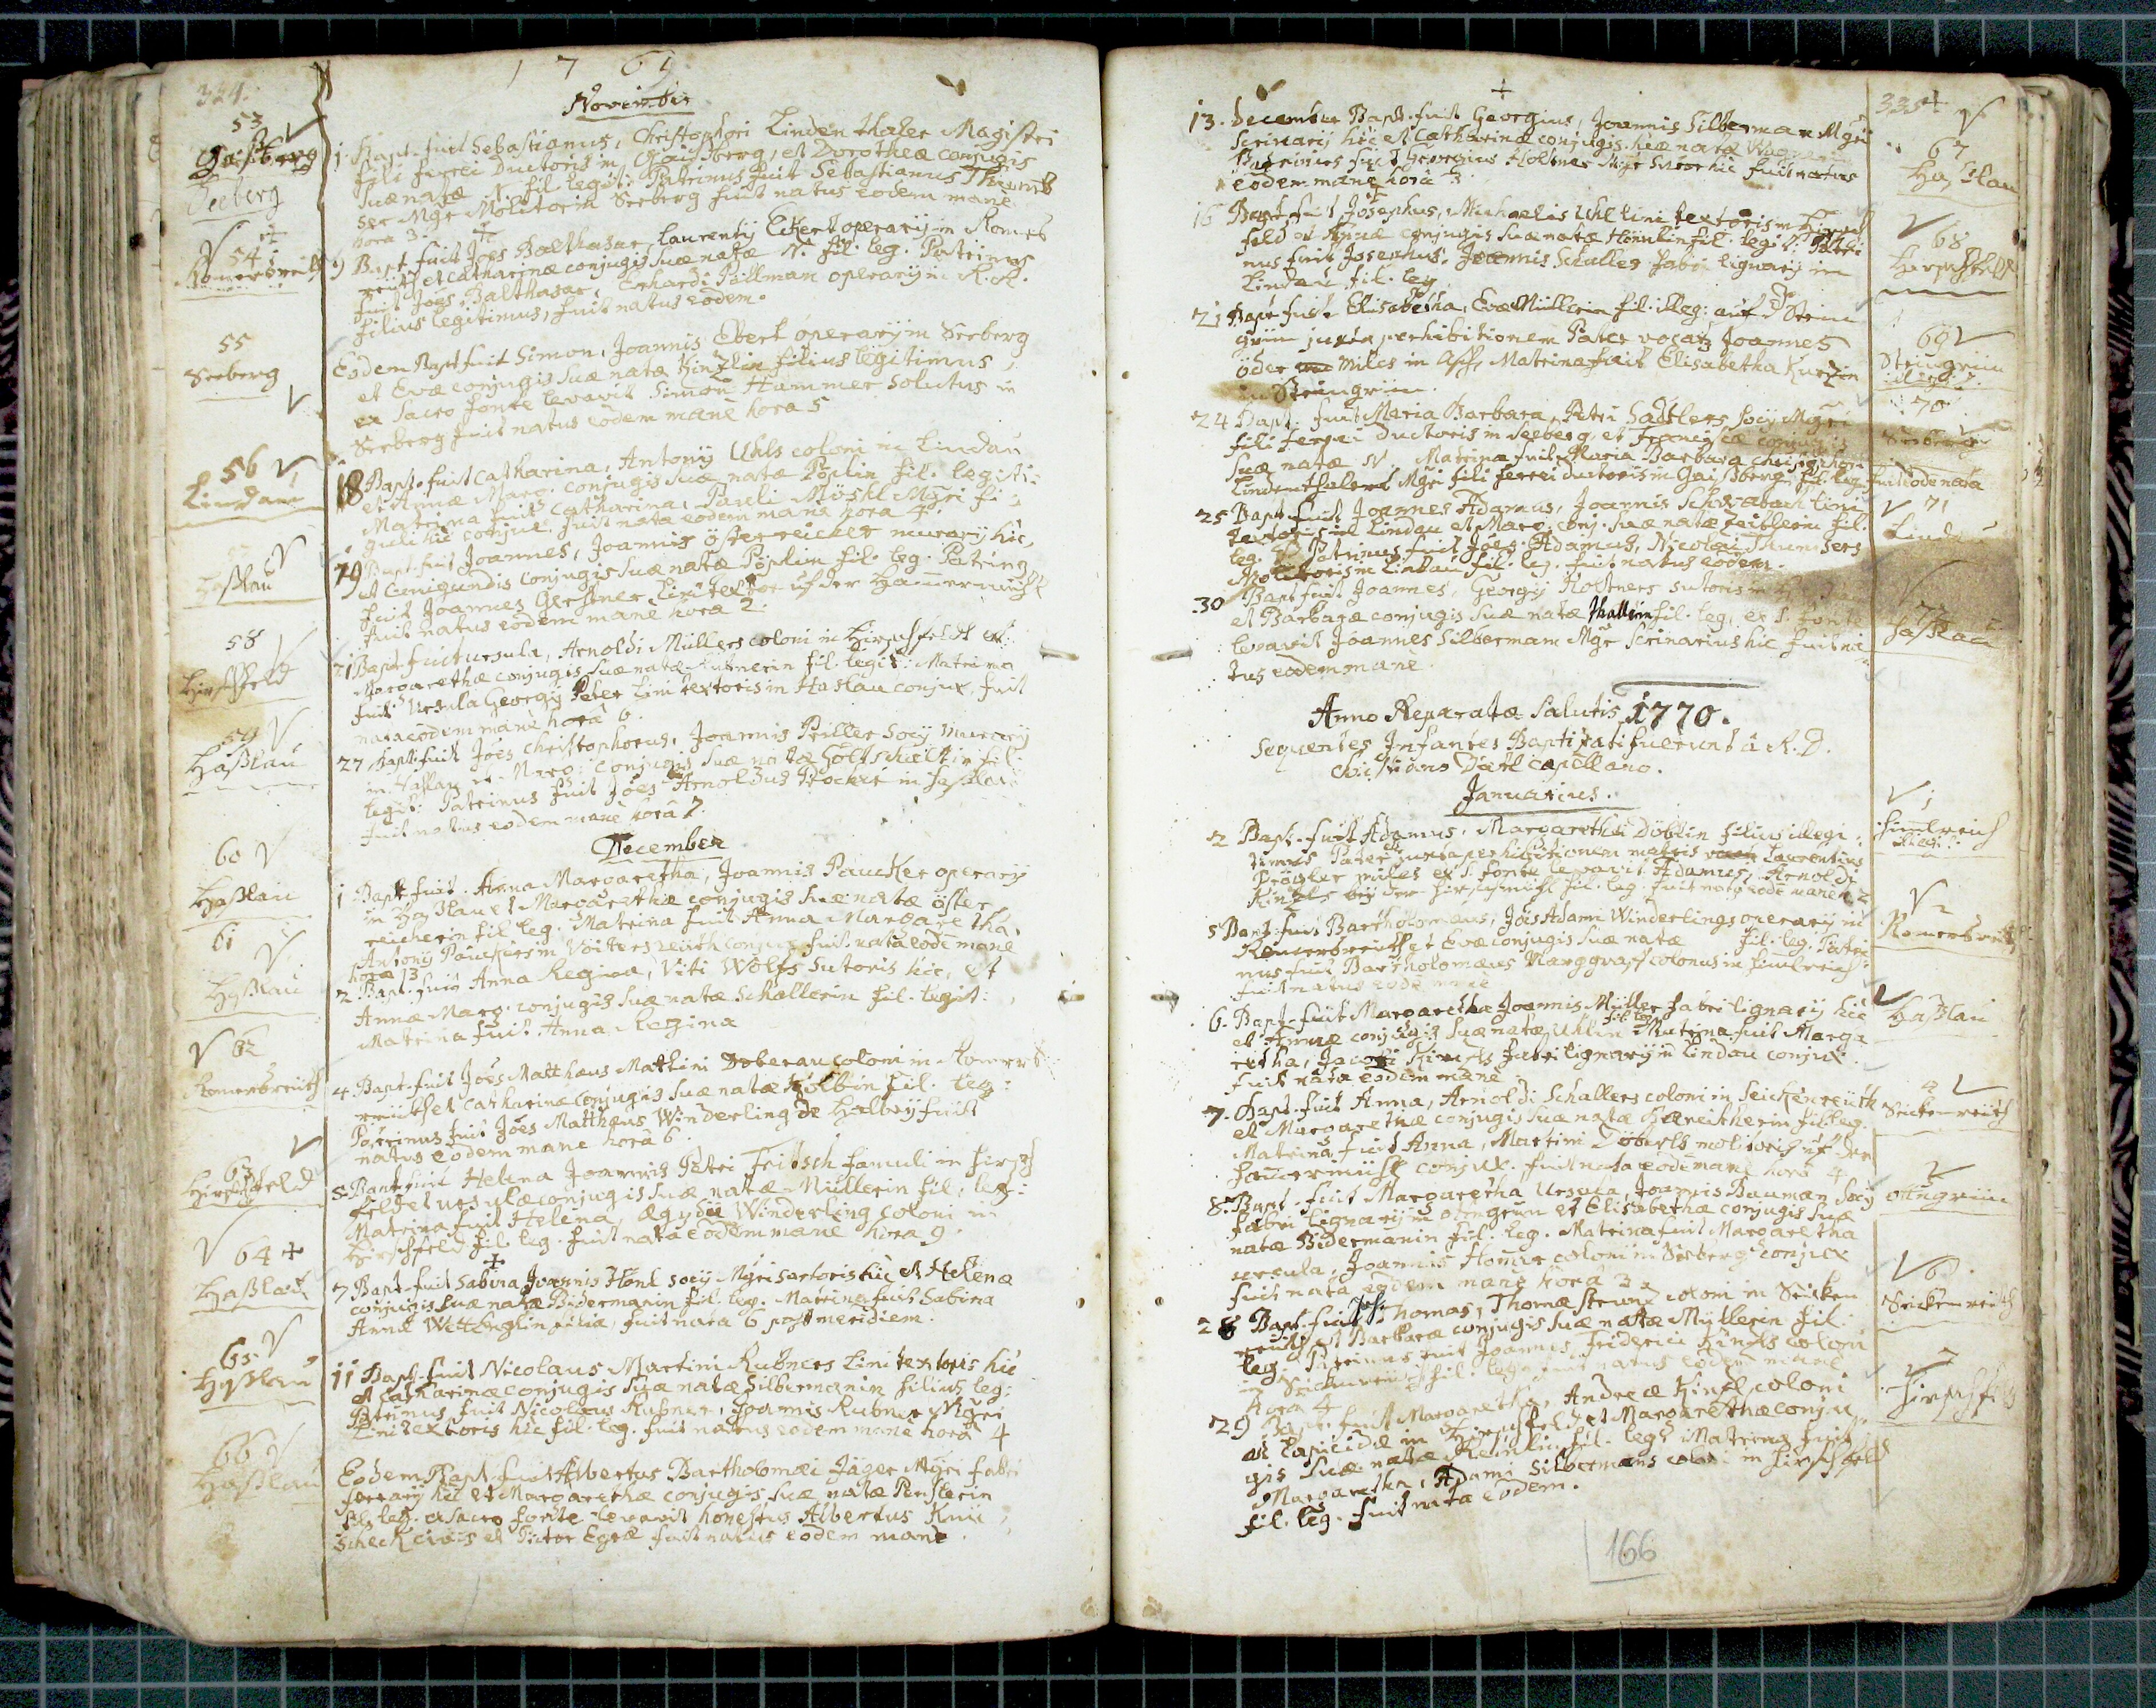 324.
1769
November
53
Gaißberg
Seeberg
1. Bapt. fuit Sebastianus, Christophori Lindenthaler Magistri
fili ferrei Ductoris in Gaissberg, et Dorotheæ conjugis
suæ natæ N. fil. legit: Patrinus fuit Sebastianus
ser Mgr Molitor in Seeberg fuit natus eodem mane
hora 3.
54
Romersreith
9 Bapt. fuit Joes Balthasar, Laurentij Ekert operarij in Romers
reith et Catharinæ conjugis suæ natæ N. fil. leg. Patrinus
fuit Joes Balthasar, Erhardi Pillman operarij in R.R.
filius legitimus, fuit natus eodem.
55
Seeberg
Eodem Bapt. fuit Simon, Joannis Ebert operarij in Seeberg
et Evæ conjugis suæ natæ Kinzlin filius legitimus,
ex sacro fonte levavit Simon Hammer solutus in
Seeberg fuit natus eodem mane hora 5
56
Lindau
18 Bapt. fuit Catharina, Antonij Uhls coloni in Lindau
et Annæ Marg. conjugis suæ natæ Pöplin fil. legiti
Matrina fuit Catharina, Pauli Möskl Mgri fi
guli hic conjux. fuit nata eodem mane hora 4.
Haßlau
19 Bapt. fuit Joannes, Joannis österreicher murarij hic,
et Cunigundis conjugis suæ natæ Pöplin fil. leg. Patrinus
fuit Joannes Gerstner Linitextor uf der Hamermühl
fuit natus eodem mane hora 2.
58
Hirschfeld
21 Bapt. fuit Ursula, Arnoldi Müllers coloni in Hirschfeldt et
Margarethæ conjugis suæ natæ Rubnerin fil. legit: Matrina
fuit Ursula Georgij Peter Linitextoris in Haslau conjux, fuit
nata eodem mane hora 6.
59
Haßlau
27 Bapt. fuit Joes Christophorus, Joannis Priller Socij murarij
in Haslau et Marg: conjugis suæ natæ Goltschaltin fil.
legit: Patrinus fuit Joes Arnoldus Stocker in Haßlau
fuit natus eodem mane hora 7.
December
60
Haßlau
1 Bapt. fuit Anna Margaretha, Joannis Paucker operarij
in Haßlau et Margarethæ conjugis suæ natæ öster
reicherin fil. leg. Matrina fuit Anna Margaretha,
Antonij Pauckers in Voitersreuth conjux fuit nata eode mane
hora 13
61
Haßlau
2 Bapt. fuit Anna Regina, Viti Wolfs Sutoris hic, et
Annæ Marg. conjugis suæ natæ Schallerin fil. legit:
Matrina fuit Anna Regina
62
Romersreuth
4 Bapt. fuit Joes Matthæus Mathiæ Doberau coloni in Romers
reuth et Catharinæ conjugis suæ natæ Kolbin fil. leg:
Patrinus fuit Joes Matthæus Winderling de Halbey fuit
natus eodem mane hora 6.
63
Hirschfeld
5 Bapt. fuit Helena Joannis Petri Fritsch famuli in Hirsch
feld et Ursulæ conjugis suæ natæ Müllerin fil: leg:
Matrina fuit Helena, Ægydii Winderling coloni in
Hirschfeld fil. leg. fuit nata eodem mane hora 9.
64 +
Haßlau
7 Bapt. fuit Sabina Joannis Hönl socij Mgri sartoris hic et Helenæ
conjugis suæ natæ Bidermanin fil. leg. Matrina fuit Sabina
Annæ Wettenglin filia, fuit nata 6 post meridiem.
65
Haßlau
11 Bapt. fuit Nicolaus Martini Rubners Linitextoris hic
et Catharinæ conjugis suæ natæ Silbermanin filius leg:
Patrinus fuit Nicolaus Rubner, Joannis Rubner Mgri
Linitextoris hic fil. leg. fuit natus eodem mane hora 4
66
Haßlau
Eodem Bapt. fuit Albertus Bartholomæi Jäger Mgri fabri
ferrarij hic et Margarethæ conjugis suæ natæ Pensterin
fil. leg. e sacro fonte levavit honestus Albertus Knie
scheck civis et Pictor Egræ fuit natus eodem mane.
335
13. December Bapt. fuit Georgius, Joannis Silberman Mgri
Scrinarij hic et Catharinæ conjugis suæ natæ
Patrinus fuit Georgius Holdner Mgr Sutor hic fuit natus
eodem mane hora 3.
67
Haßlau
16 Bapt. fuit Josephus, Michaelis Uhl linitextoris in Hirsch
feld et conjugis suæ natæ fil. legit: Patri
nus fuit Josephus, Joannis Schaller fabri lignarij in
Lindau fil. leg.
68
Hirschfeld
21 Bapt. fuit Elisabetha, Evæ Müllerin fil. illeg: auf d Stein
grün juxta perhibitionem Pater vocatur Joannes
öder miles in Asch, Matrina fuit Elisabetha Kurzin
in Steingrün.
69
Steingrün
illegit.
24 Bapt. fuit Maria Barbara, Petri Sattlers socij Mgri
fili ferrei Ductoris in Seeberg, et Franciscæ conjugis
suæ natæ N. Matrina fuit Maria Barbara Christophori
Lindenthalers Mgri fili ferrei ductoris in Gaisberg. fil. leg. fuit eode nata
70
Seeberg
25 Bapt. fuit Joannes Adamus, Joannis Schwabach lini
textoris in Lindau et Marg. conj. suæ natæ Feiblerin fil.
leg. Patrinus fuit Joes Adamus, Nicolai Thumsers
Molitoris in Lindau fil. leg. fuit natus eodem.
71
Lindau
30 Bapt. fuit Joannes, Georgij Holtners sutoris in
et Barbaræ conjugis suæ natæ Thallerin fil. leg. ex S. fonte
levavit Joannes Silberman Mgr Scrinarius hic fuit na
tus eodem mane.
72
Haßlau
Anno Reparatæ Salutis 1770.
sequentes Infantes Baptizati fuerunt à R. D.
Christiano capellano.
Januarius.
1
Himlreich
illegit:
2 Bapt. fuit Adamus, Margarethæ Döblin filius illegi
timus Pater juxta perhibitionem matris Laurentius
miles ex S. fonte levavit Adamus, Arnoldi
Künzls bey der Hirschmühl fil. leg. fuit natus eode mane h. 2
2
Romersreith
5 Bapt. fuit Bartholomæus, Jois Adami Winderlings operarij in
Romersreuth et Evæ conjugis suæ natæ fil. leg. Patri
nus fuit Bartholomæus Marggraff colonus in Himlreich
fuit natus eode mane
Haßlau
6. Bapt. fuit Margaretha Joannis Müller fabri lignarij hic
et Annæ conjugis suæ natæ Uhlin fil. leg. Matrina fuit Marga
retha, Jacobi Künzls fabri lignarij in Lindau conjux.
fuit nata eodem mane
4
Seickenreuth
7. Bapt. fuit Anna, Arnoldi Schallers coloni in Seickenreuth
et Margarethæ conjugis suæ natæ fil. leg.
Matrina fuit Anna, Martini Döberls molitoris uf der
Hamermühl conjux. fuit nata eode mane hora 4.
Ottngrün
8. Bapt. fuit Margaretha Ursula, Joannis Bauman Socij
fabri lignarij in otengrün et Elisabethæ conjugis suæ
natæ Bidermanin fil. leg. Matrina fuit Margaretha
Ursula, Joannis Homer coloni in Seeberg conjux
fuit nata eodem mane hora 3
6
Seickenreuth
28 Bapt. fuit Joh. Thomas, Thomæ coloni in Seicken
reuth et Barbaræ conjugis suæ natæ Müllerin fil.
leg. Patrinus fuit Joannes, Friderici Künzls coloni
in Seickenreuth fil. leg. fuit natus eodem mane
hora 4
7
Hirschfeld
29 Bapt. fuit Margaretha, Andreæ Künzl coloni
et lapicidæ in Hirschfeld et Margarethæ conju
gis suæ natæ fil. leg. Matrina fuit
Margaretha, Adami Silbermans coloni in Hirschfeld
fil. leg. fuit nata eodem.
166